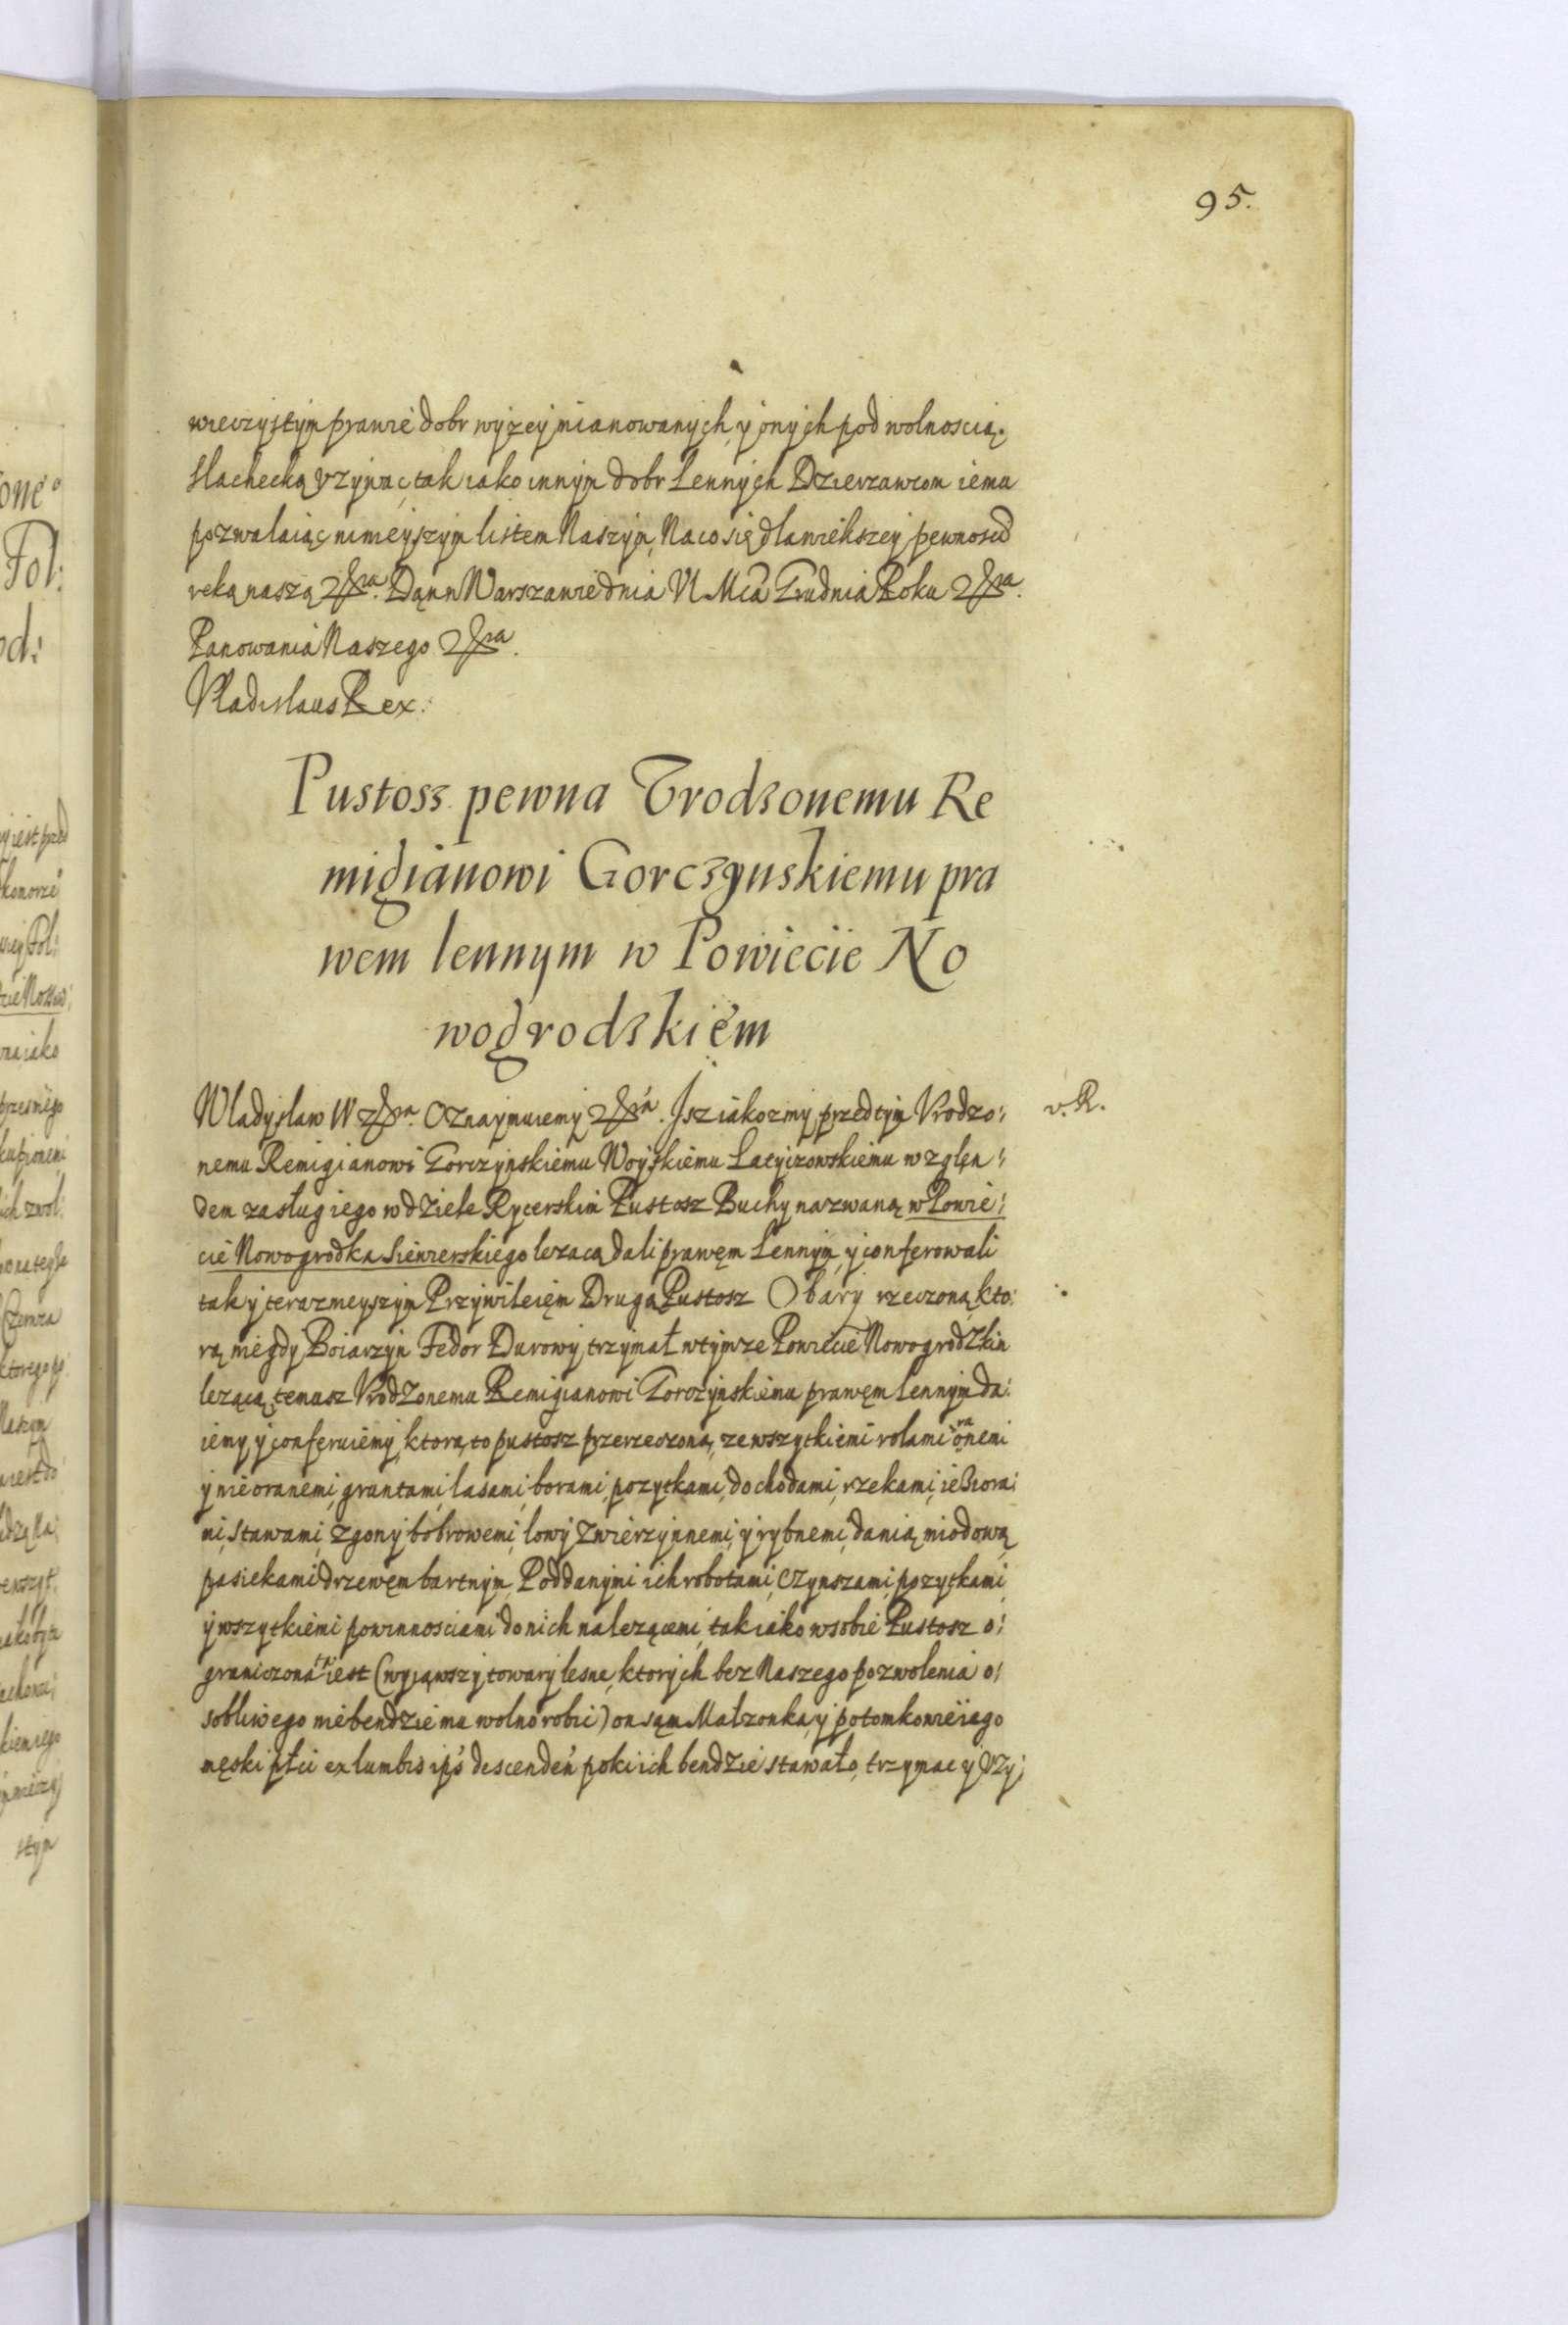 95.
wieczystym prawie dobr wyzey mianowanych, y onych pod wolnoscią
slachecką uzywac, tak iako innym dobr Lennych Dzierzawcom iemu
pozwalaiąc ninieyszym listem Naszym, Naco się dla wiekszey pewnosci
reką naszą &c. Dąn w Warszawie dnia VI Mca Grudnia Roku &c.
Panowania Naszego &c.
Vladislaus Rex.
Pustosz pewna Vrodzonemu Re
migianowi Gorczynskiemu pra
wem lennym w Powiecie No
wogrodzkiem
Wladyslaw IV &c. Oznaymuiemy &c. Isz iakozmy przedtym Vrodzo:
v. R.
nemu Remigianowi Gorczynskiemu Woyskiemu Latyczowskiemu wzglęn:
dem zasług iego w dziele Rycerskim Pustosz Buchy nazwaną w Powie:
cie Nowogrodka Siewierskiego lezacą dali prawęm Lennym, y conferowali
tak y terazmeyszym Przywileięm Drugą Pustosz Obary rzeczoną, kto:
rą niegdy Boiarzyn Fedor Durowy trzymał w tymze Powiecie Nowogrodzkim
lezącą, temusz Vrodzonemu Remigianowi Gorczynskiemu prawęm lennym da:
iemy, y conferuiemy, ktorą to pustosz przerzeczoną, ze wszytkiemi rolami oranemi
y nieoranemi, gruntami, lasami, borami, pozytkami, dochodami, rzekami, ieziora:
mi, stawami, zgony bobrowemi, lowy zwierzynnemi, y rybnemi, danią miodową
pasiekami drzewęm bartnym Poddanymi ich robotami, czynszami, pozytkami,
y wszytkiemi powinnosciami do nich nalezącemi, tak iako w sobie Pustosz o:
graniczona iest (wyiąwszy towary lesne, ktorych bez Naszego pozwolenia o:
sobliwego niebendzie mu wolno robic) on sąm Małzonka, y potomkowie iego
męski płci ex lumbis ips descenden poki ich bendzie stawało, trzymac y uzy: